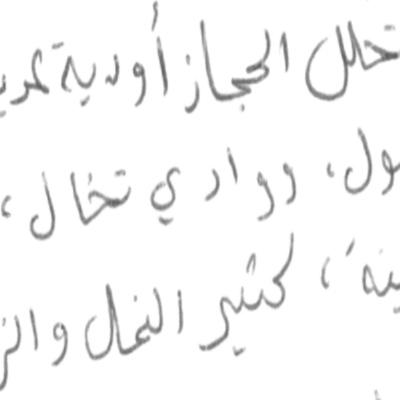 تخلل الحجاز أودية عديد
ول، ووادي نخال،
ينة، كثير النخل والز